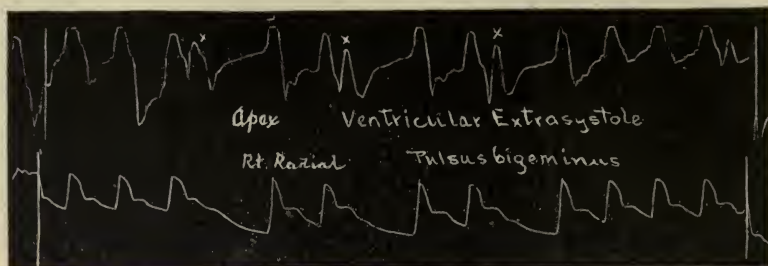 x x x
Apex Ventricular Extrasystole
Rt. Radial Pulsus bigeminus